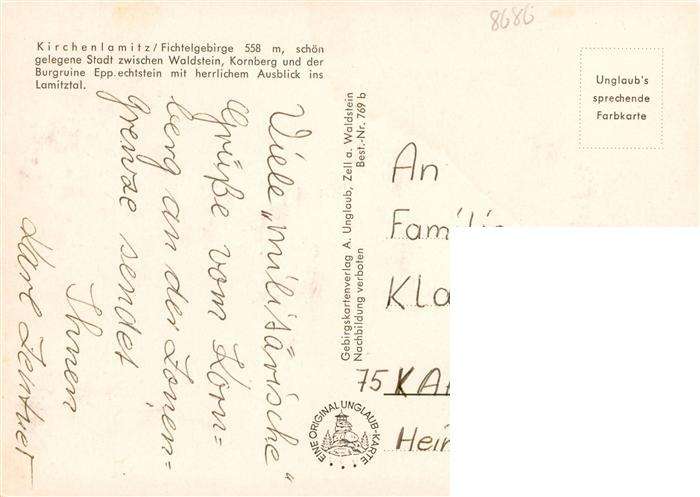 8686
Kirchenlamitz/Fichtelgebirge 558 m, schön
gelegene Stadt zwischen Waldstein, Kornberg und der
Burgruine Epp.echtstein mit herrlichem Ausblick ins
Lamitztal.
Viele „militärische"
Grüße vom Korn=
berg an der Zonen=
grenze sendet
Ihnen
Karl
Gebirgskartenverlag A. Unglaub, Zell a. Waldstein
Nachbildung verboten Best.-Nr. 769 b
EINE ORIGINAL UNGLAUB-KARTE
Unglaub's
sprechende
Farbkarte
An
Familie
Kla
75 KA
Hein